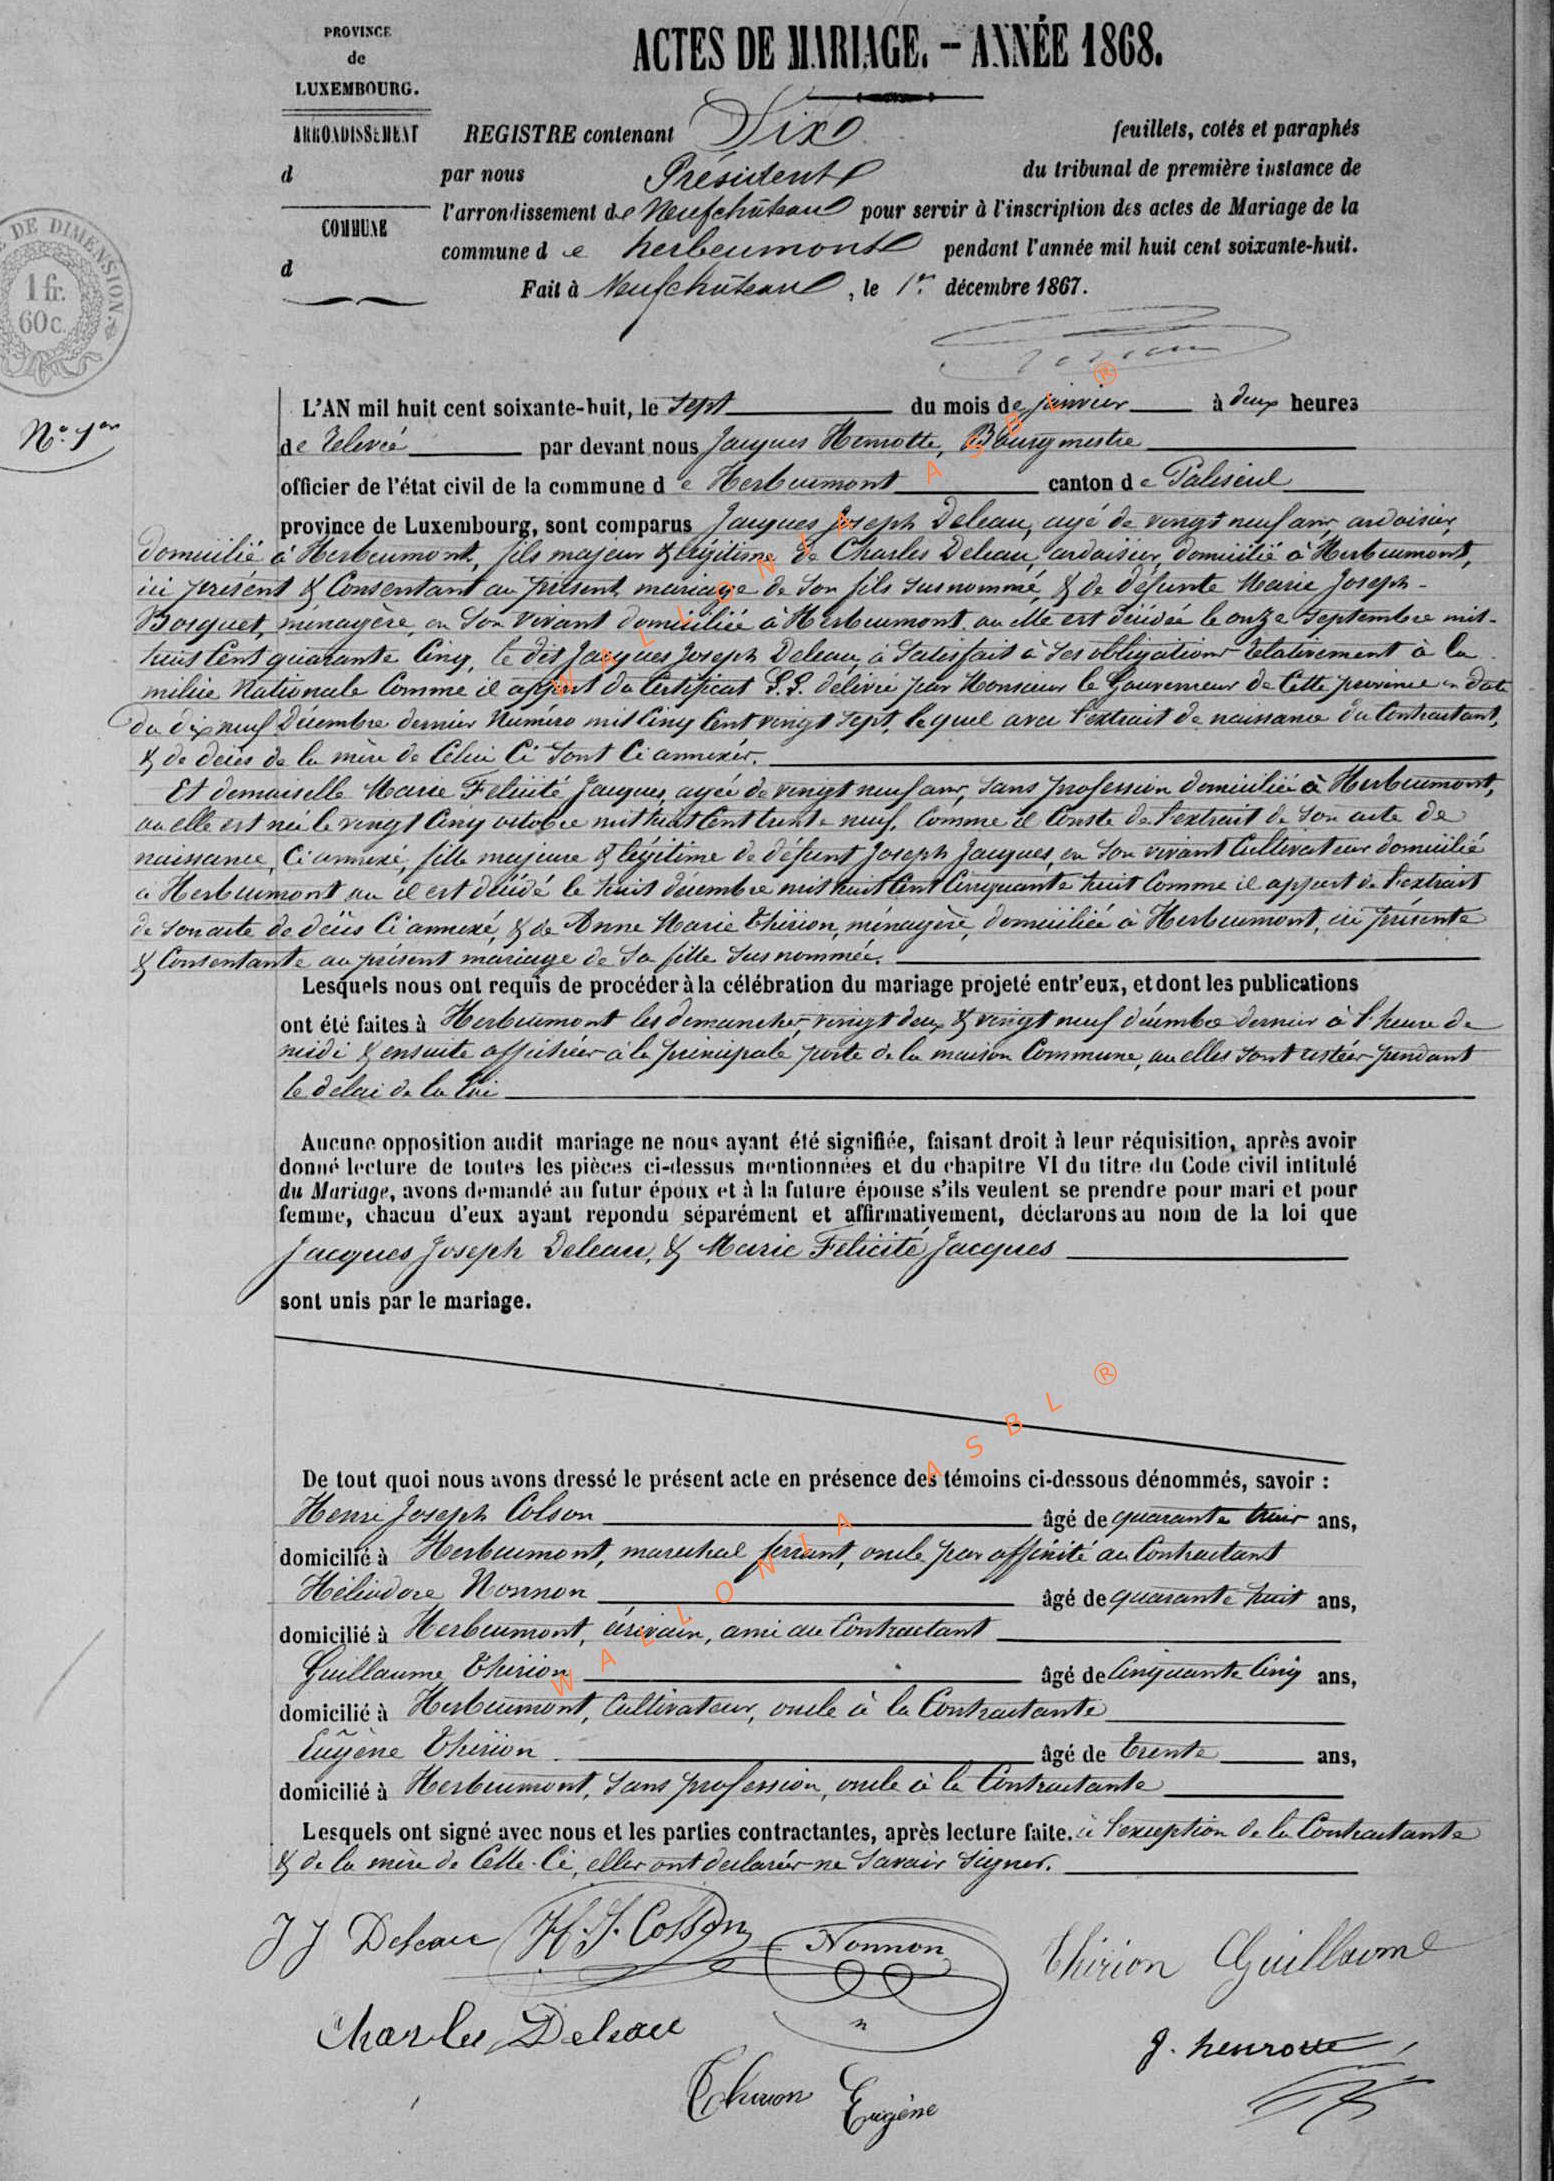 PROVINCE
de
LUXEMBOURG.
ARRONDISSEMENT
d
COMMUNE
d
ACTES DE MARIAGE. – ANNÉE 1868.
REGISTRE contenant Dix feuillets, cotés et paraphés
par nous Président du tribunal de première instance de
l'arrondissement de Neufchâteau pour servir à l'inscription des actes de Mariage de la
commune d e herbeumont pendant l'année mil huit cent soixante-huit.
Fait à Neufchâteau, le 1er décembre 1867.
DE DIMENSION.
1 fr.
60 c.
N° 1er
L'AN mil huit cent soixante-huit, le sept du mois de janvier à deux heures
de relevée par devant nous Jacques Henrotte, Bourgmestre
officier de l'état civil de la commune d e Herbeumont canton d e Paliseul
province de Luxembourg, sont comparus Jacques Joseph Deleau, agé de vingt neuf ans, ardoisier,
domicilié à Herbeumont, fils majeur & légitime de Charles Deleau, ardoisier, domicilié à Herbeumont,
ici présent & Consentant au présent mariage de son fils susnommé, & de défunte Marie Joseph
Bosquet, ménagère, en son vivant domiciliée à Herbeumont, ou elle est décédée le onze Septembre mil-
huit Cent quarante Cinq, le dit Jacques Joseph Deleau, a Satisfait à ses obligations relativement à la
milice Nationale Comme il appert du Certificat délivré par Monsieur le Gouverneur de Cette province en date
du dix neuf Décembre dernier Numéro mil Cinq Cent vingt sept, lequel avec l'extrait de naissance du Contractant,
& de décès de la mère de Celui Ci sont Ci annexés.
Et demoiselle Marie Felicité Jacques, agée de vingt neuf ans, sans profession domiciliée à Herbeumont,
ou elle est née le vingt Cinq octobre mil huit Cent trente neuf, Comme il Conste de l'extrait de son acte de
naissance, Ci annexé, fille majeure & légitime de défunt Joseph Jacques, en son vivant Cultivateur domicilié
à Herbeumont ou il est décédé le huit décembre mil huit Cent Cinquante huit Comme il appert de l'extrait
de son acte de décès Ci annexé, & de Anne Marie Thirion, ménagère, domiciliée à Herbeumont, ici présente
& Consentante au présent mariage de Sa fille Susnommée.
Lesquels nous ont requis de procéder à la célébration du mariage projeté entr'eux, et dont les publications
ont été faites à Herbeumont les dimanches, vingt deux & vingt neuf décembre dernier à l'heure de
midi & ensuite affichées à la principale porte de la maison Commune, ou elles sont restées pendant
le délai de la loi
Aucune opposition audit mariage ne nous ayant été signifiée, faisant droit à leur réquisition, après avoir
donné lecture de toutes les pièces ci-dessus mentionnées et du chapitre VI du titre du Code civil intitulé
du Mariage, avons demandé au futur époux et à la future épouse s'ils veulent se prendre pour mari et pour
femme, chacun d'eux ayant répondu séparément et affirmativement, déclarons au nom de la loi que
Jacques Joseph Deleau, & Marie Felicité Jacques
sont unis par le mariage.
De tout quoi nous avons dressé le présent acte en présence des témoins ci-dessous dénommés, savoir :
Henri Joseph Colson âgé de quarante ans,
domicilié à Herbeumont, marechal ferrant, oncle par affinité au Contractant
Héliodore Nonnon âgé de quarante huit ans,
domicilié à Herbeumont, écrivain, ami au Contractant
Guillaume Thirion âgé de Cinquante Cinq ans,
domicilié à Herbeumont, Cultivateur, oncle à la Contractante
Eugène Thirion âgé de trente ans,
domicilié à Herbeumont, sans profession, oncle à la Contractante
Lesquels ont signé avec nous et les parties contractantes, après lecture faite. à l'exception de la Contractante
& de la mère de Celle-Ci, elles ont declarées ne Savoir Signer.
J J Deleau H. J. Colson Nonnon Thirion Guillaume
Charles Deleau J. henrotte
Thirion Eugène
WALLONIA ASBL ®
WALLONIA ASBL ®